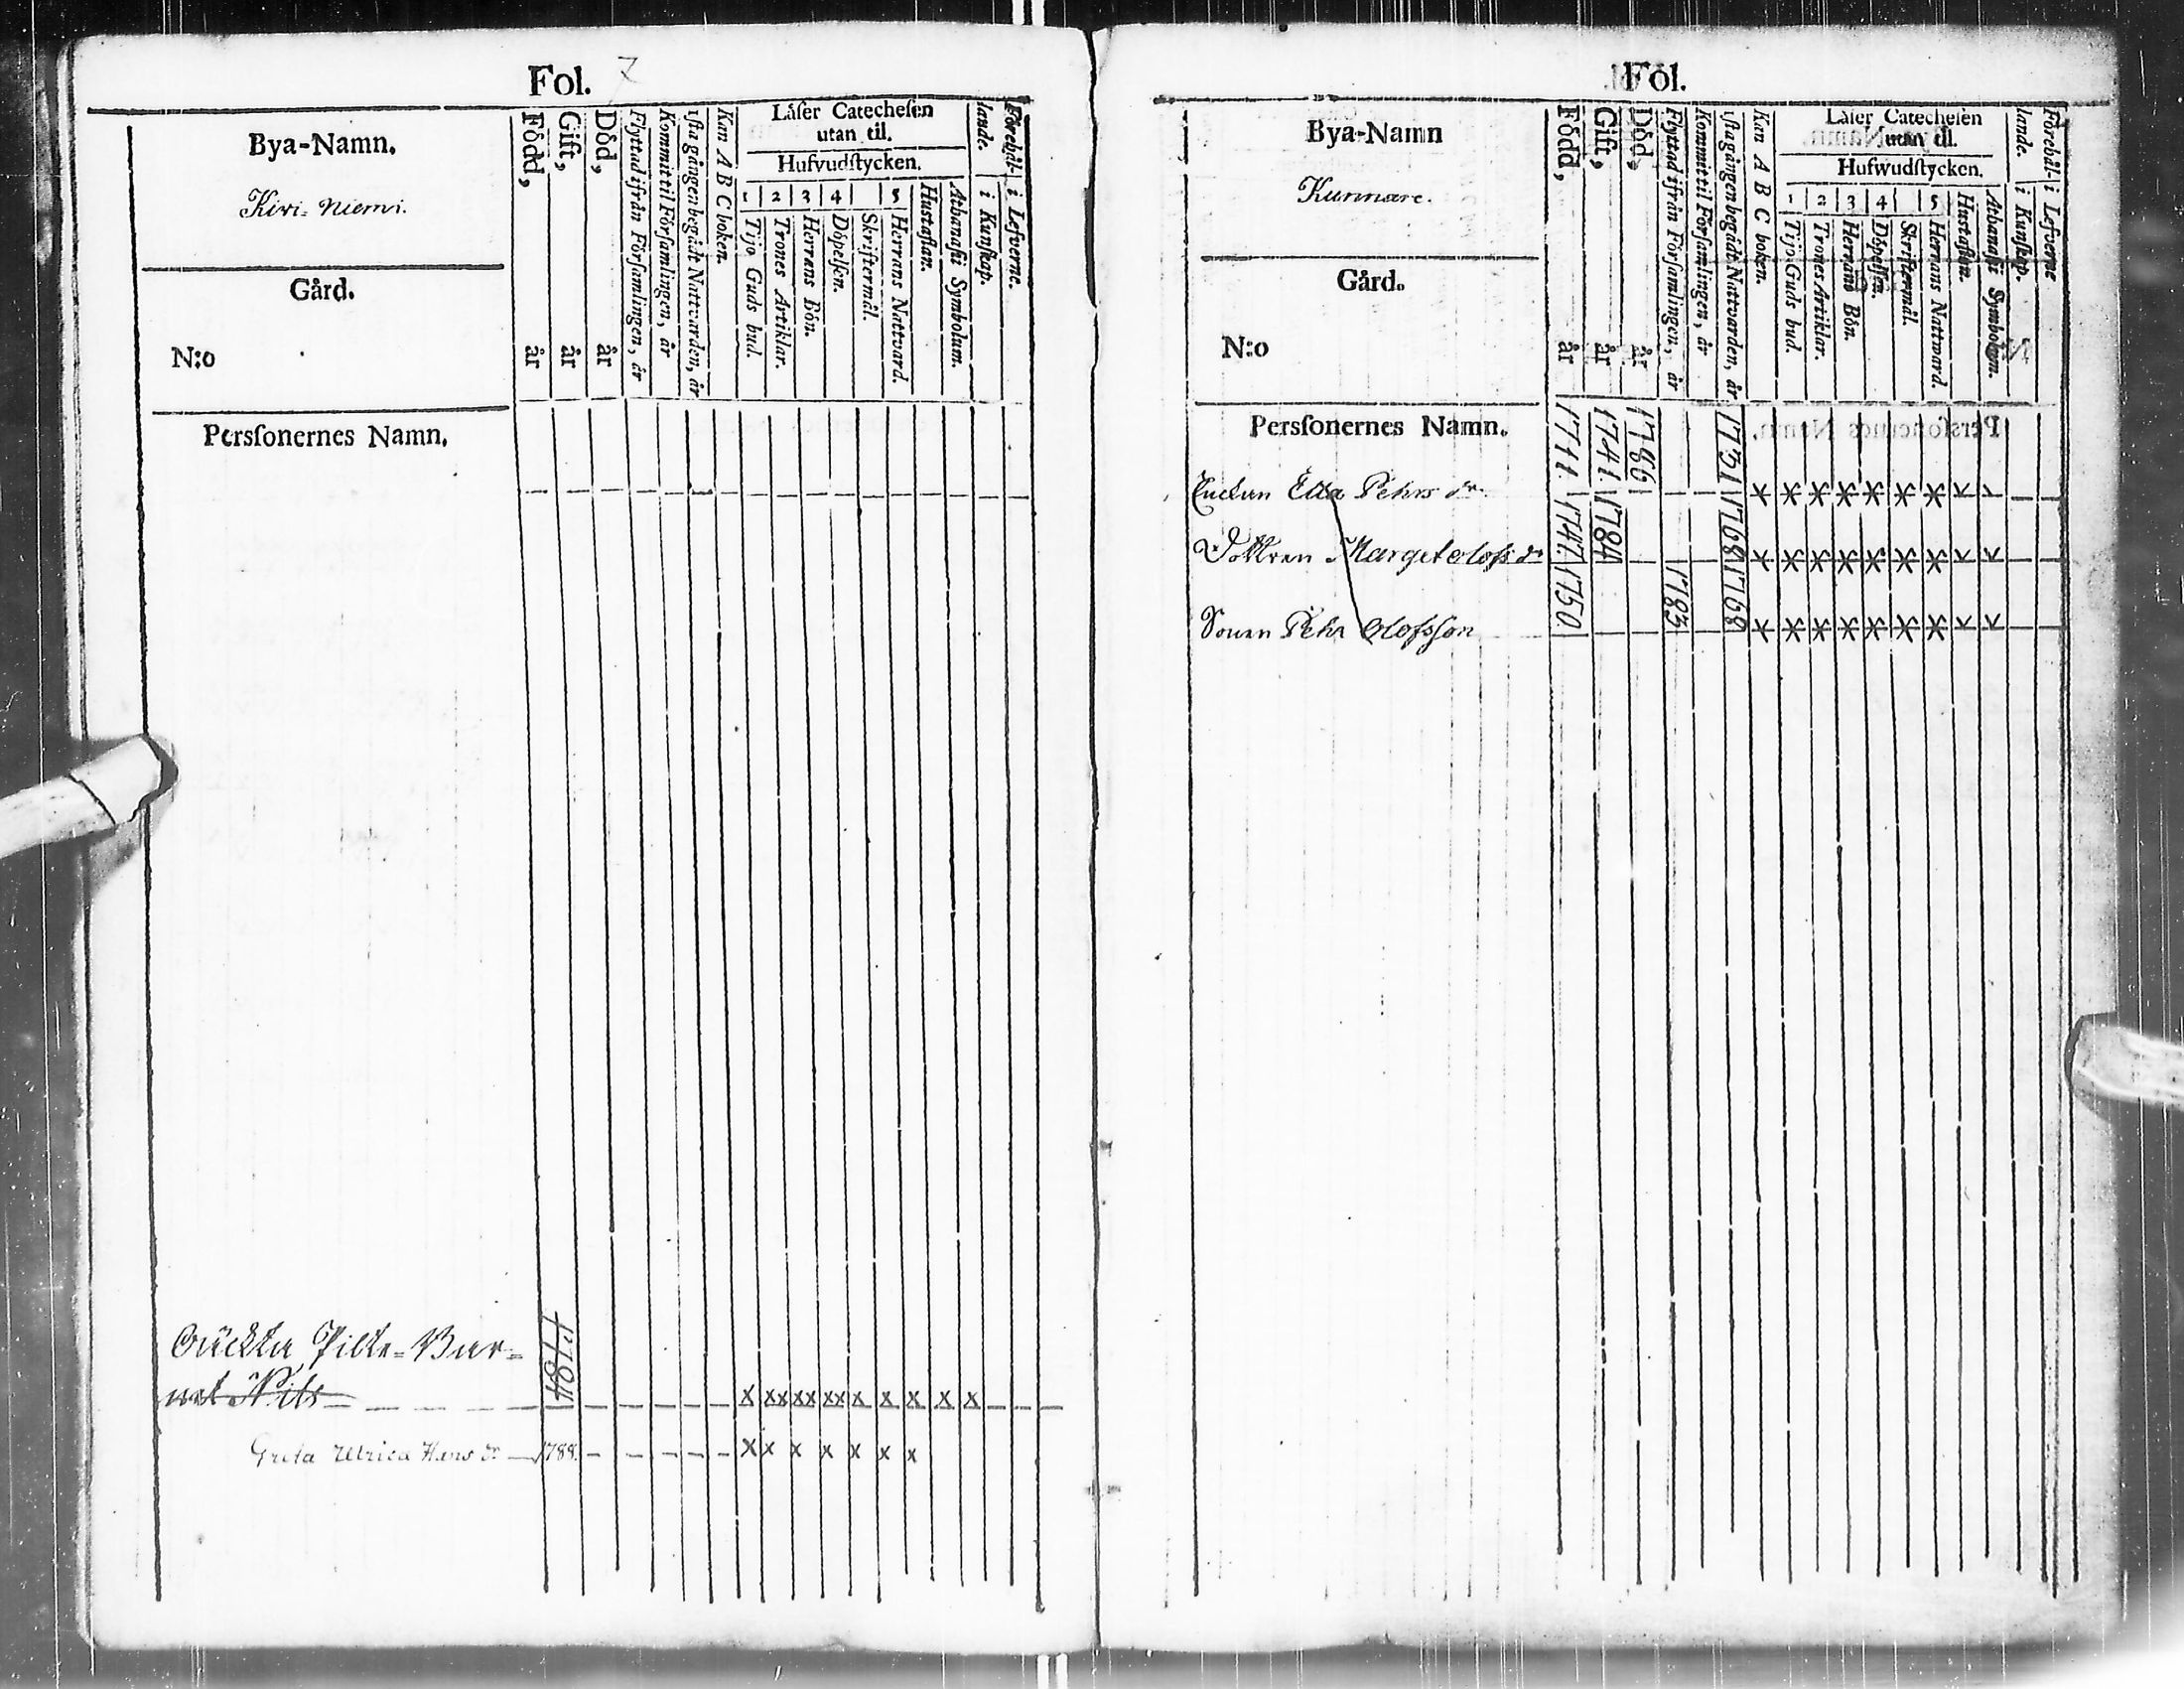 Fol. 7
Bya-Namn.
Kivi-Niemi.
Gård.
N:o
Persſonernes Namn.
Född, år
Gift, år
Död, år
Flyttad ifrån Förſamlingen, år
Kommit til Förſamlingen, år
1ſta gången begådt Nattvarden, år
Kan A B C boken.
Låſer Catecheſen
utan til.
Hufvudſtycken.
1 2 3 4 5
Tijo Guds bud.
Trones Artiklar.
Herrans Bön.
Döpelſen.
Skriftermål.
Herrans Nattvard.
Huſtaflan.
Athanaſii Symbolum.
Förehål-
lande.
i Kunſkap.
i Lefverne.
Pilte-Bar-
net Nils 1784 x xx xx xx x x x x x
Greta Ulrica Hans dr 1788. x x x x x x x
Fol.
Bya-Namn
Kunnare.
Gård.
N:o
Persſonernes Namn.
Född, år
Gift, år
Död, år
Flyttad ifrån Förſamlingen, år
Kommit til Förſamlingen, år
1ſta gången begådt Nattvarden, år
Kan A B C boken.
Låſer Catecheſen
utan til.
Hufwudſtycken.
1 2 3 4 5
Tijo Guds bud.
Trones Artiklar.
Herrans Bön.
Döpelſen.
Skriftermål.
Herrans Nattward.
Huſtaflan.
Athanaſii Symbolum.
Förehål-
lande.
i Kunſkap.
i Lefverne
Enckan Ella Pehrs dr. 1711. 1741. 1786 1731
Dottren Marget Olofs dr 1747. 1784 1768
Sonen Pehr Olofsſon 1750 1783 1768